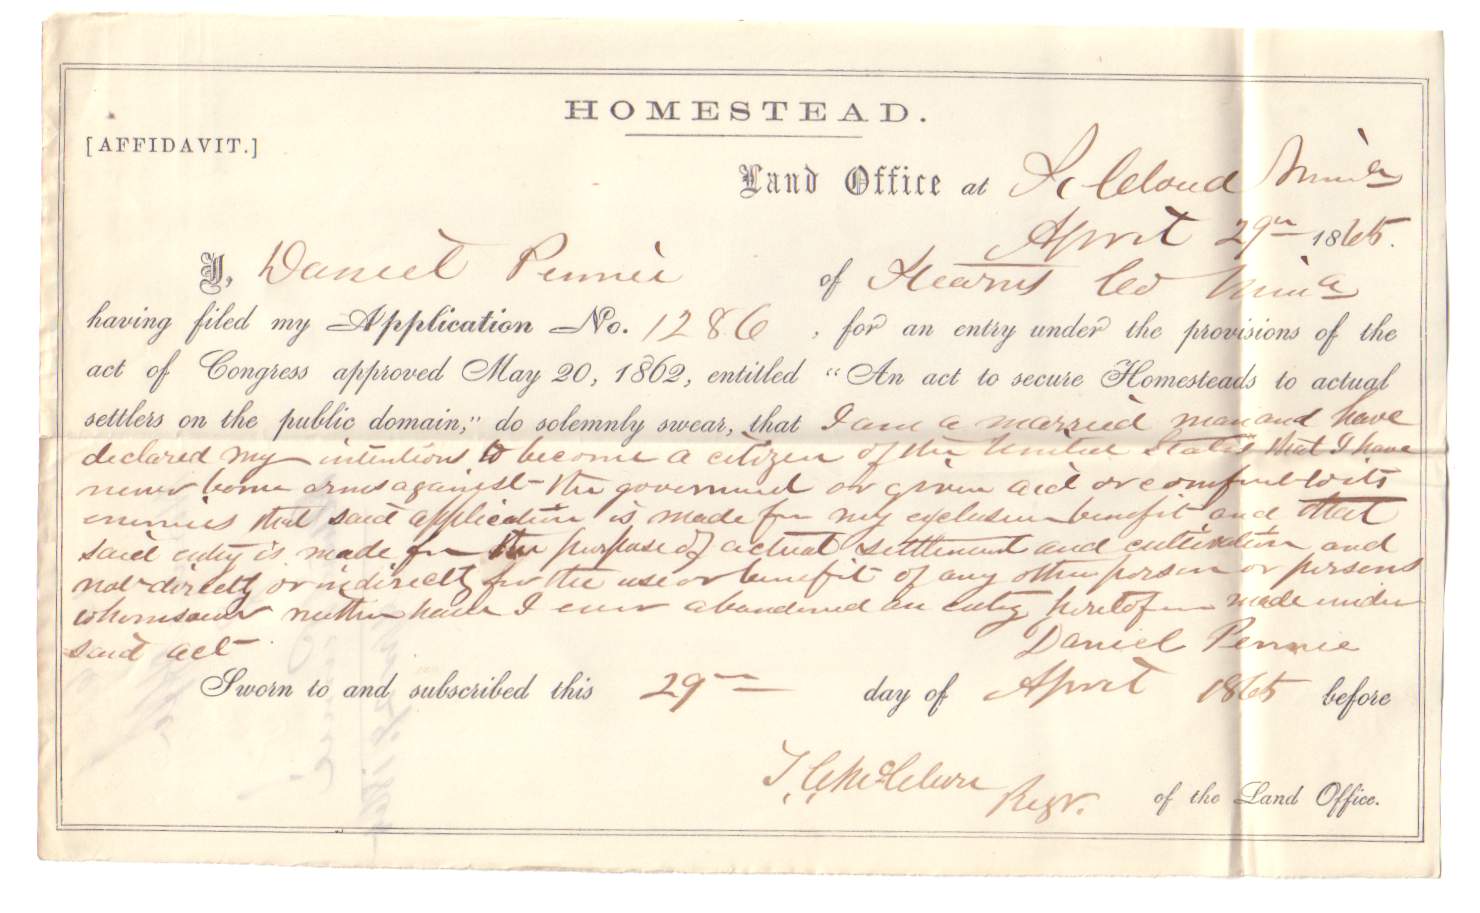 HOMESTEAD.
[AFFIDAVIT.]
Land Office at St Cloud Minn
April 29th 1865.
I, Daniel Pennie of Stearns Co Minn
having filed my Application No. 1286, for an entry under the provisions of the
act of Congress approved May 20, 1862, entitled "An act to secure Homesteads to actual
settlers on the public domain," do solemnly swear, that I am a married man and have
declared my intentions to become a citizen of the United States that I have
never borne arms against the government or given aid or comfort to its
enemies that said application is made for my exclusive benefit and that
said entry is made for the purpose of actual settlement and cultivation and
not directly or indirectly for the use or benefit of any other person or persons
whomsoever neither have I ever abandoned an entry heretofore made under
said act
Daniel Pennie
Sworn to and subscribed this 29th day of April 1865 before
T. C. McClure Regr. of the Land Office.